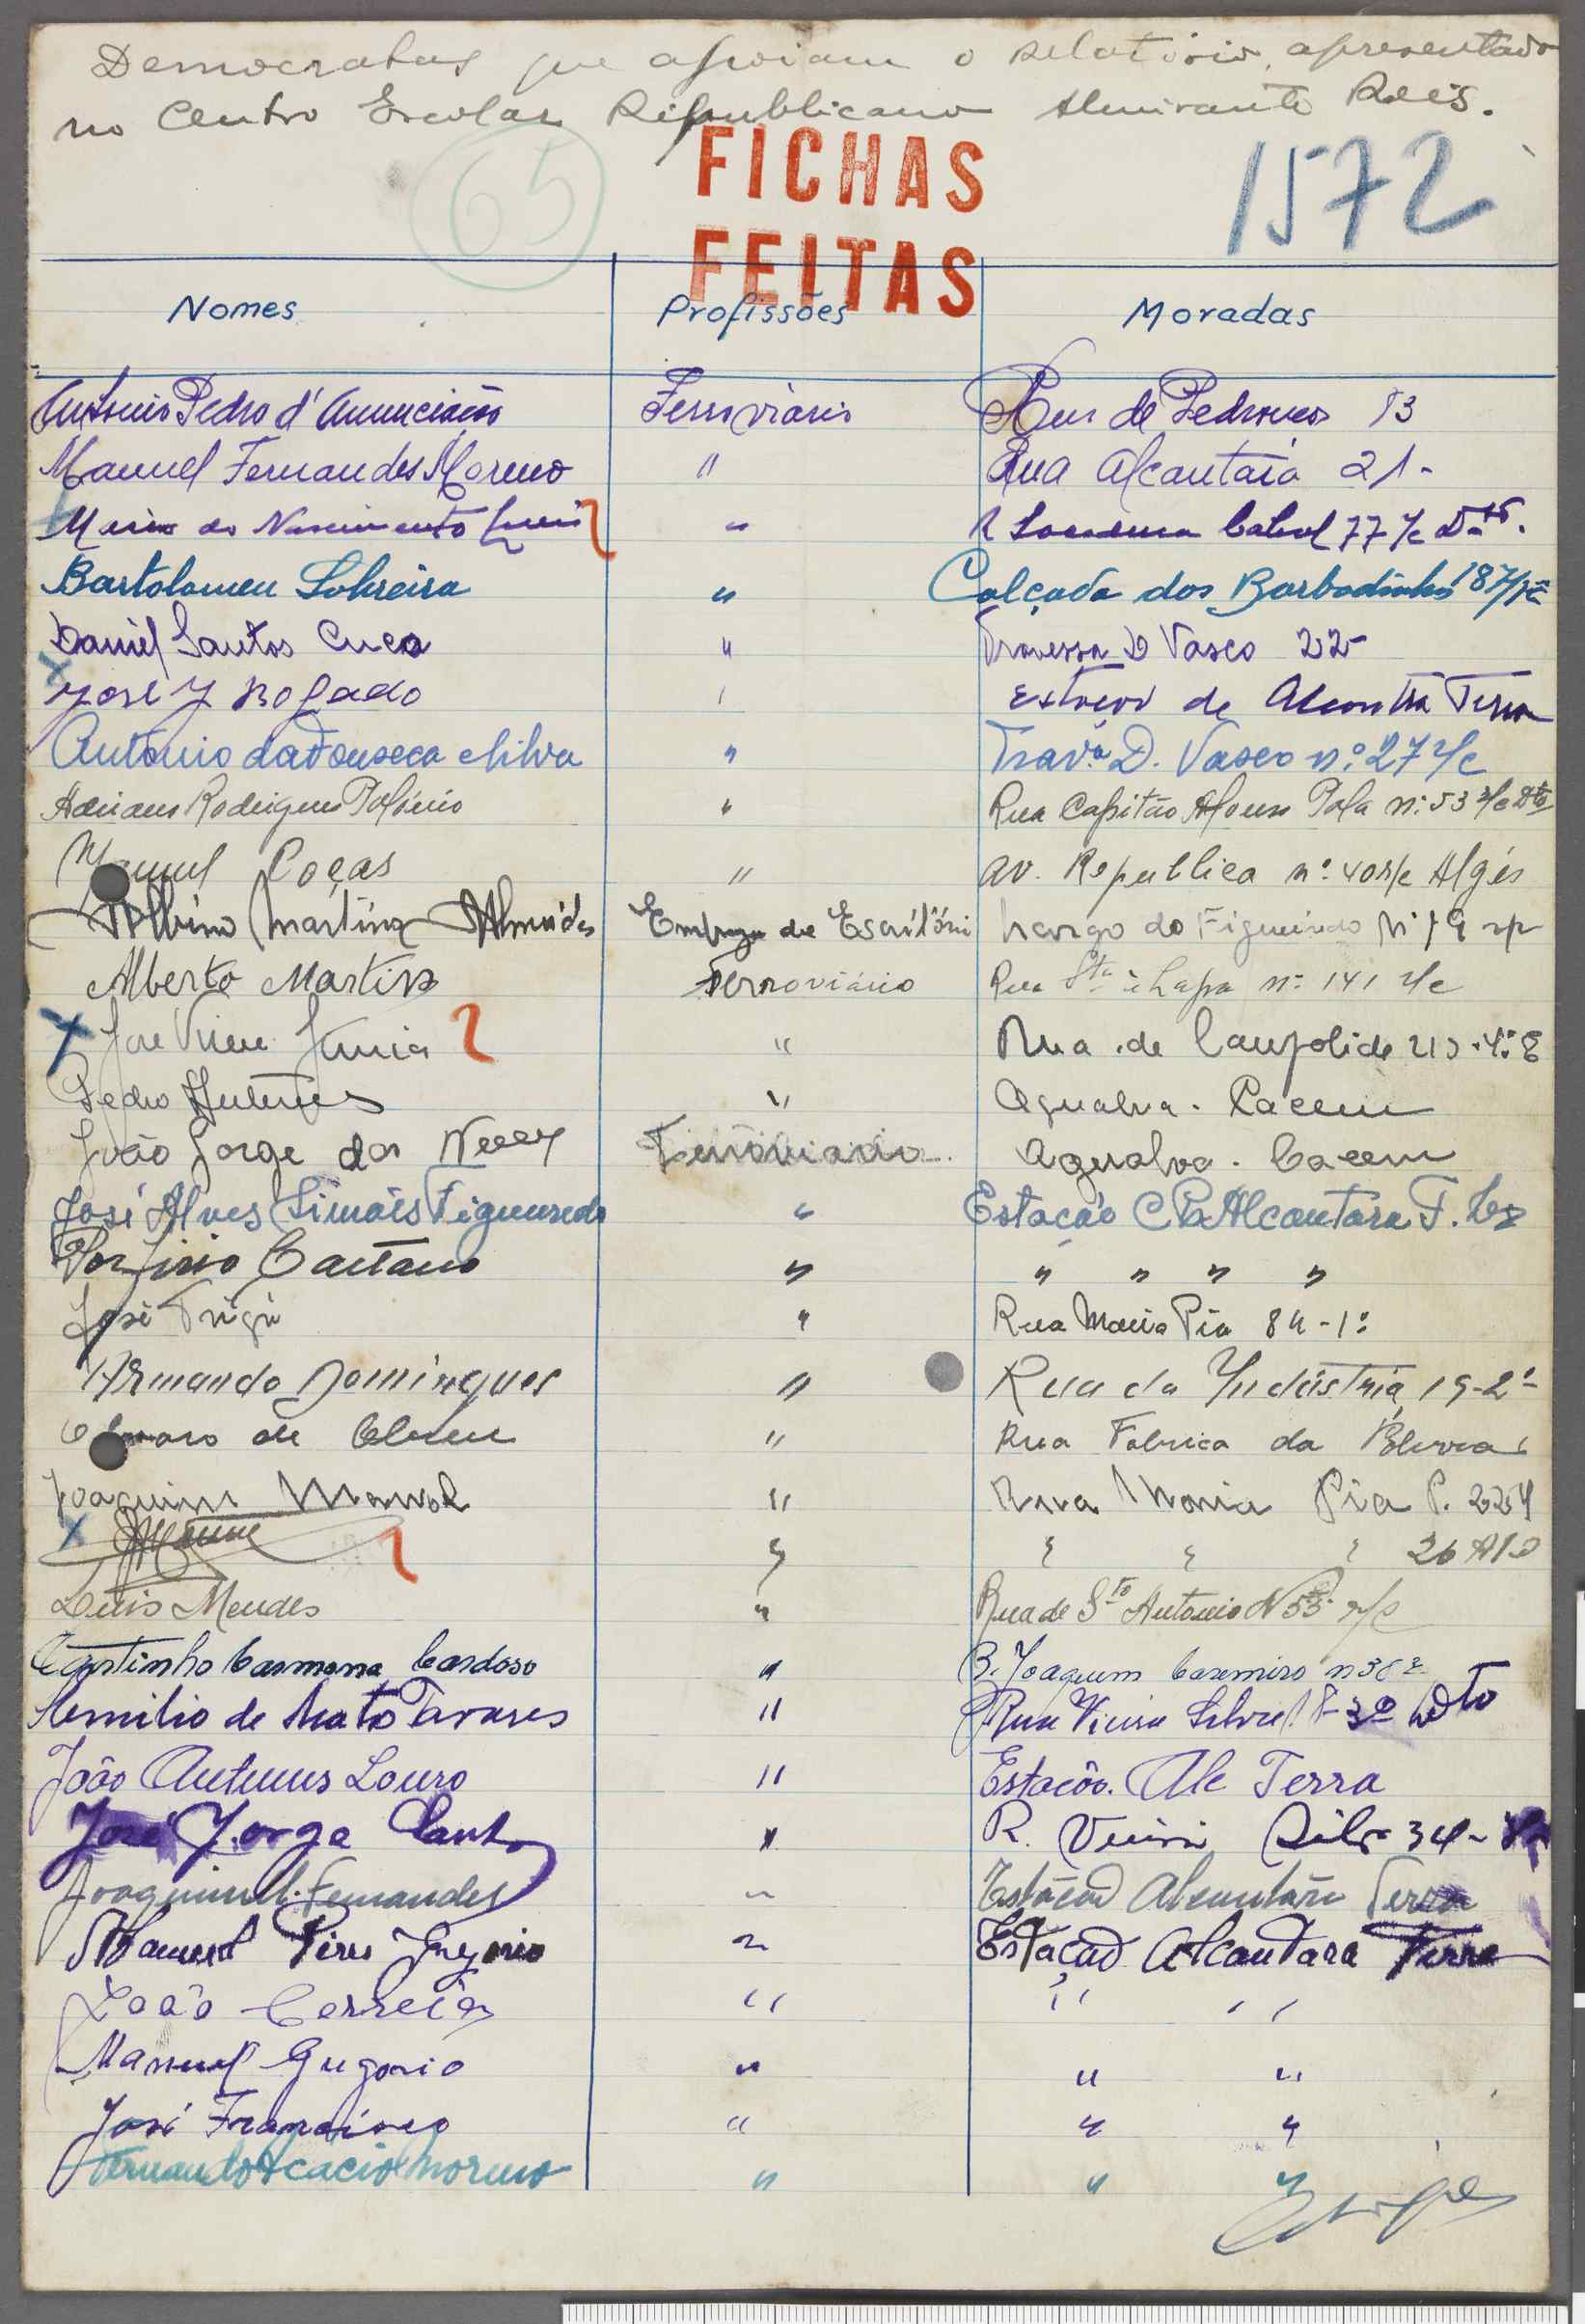 Democratas que apoiam o relatório, apresentado
no Centro Escolar Republicano Almirante Reis.
65
FICHAS
FEITAS
1572
Nomes Profissões Moradas
António Pedro d'Anunciação Ferroviário Rua de Pedrouços
Manuel Fernandes Moreno " Rua Alcantara 21-
do Nascimento " R Cabral 77 r/c D.to.
Bartolomeu Sobreira " Calçada dos Barbadinhos 187 r/c
Daniel Santos Cuco " Travessa D Vasco 22-
José J Rogado Estação de Alcantra Terra
António da Fonseca e Silva " Trav.a D. Vasco n.º 27 r/c
Adriano Rodrigues Polónio " Rua Capitão Afonso Pala n.º 53 r/c Dto
Manuel Poças " Av. Republica n.º 40 r/c Algés
Albino Martins Almeida Largo do Figueiredo
Alberto Martins Ferroviário Rua Sta à Lapa n.º 141 r/c
José Júnior " Rua de Campolide 4.º E
Pedro Antunes " Agualva - Cacem
João Jorge das Neves Ferroviario. Agualva - Cacem
José Alves Simões Figueiredo " Estação C P Alcantara T. Lx
Porfirio Caetano " " " " "
José Trigo " Rua Maria Pia 84-1º
Armando Domingues " Rua da Indústria, 19-2º
de Abreu " Rua Fabrica da
Joaquim " Rua Maria Pia P. 224
" " " " 26
Luis Mendes " Rua de Sto Antonio N 55 r/c
Agostinho Carmona Cardoso " R. Joaquim Casemiro
de Tavares " Rua Vieira 3º Dto
João Antunes Louro " Estação. Alc Terra
José Jorge Santos " R. Vieira Silva 34-
Joaquim Fernandes " Estação Alcantâra Terra
Manuel Pires Gregorio " Estação Alcantara Terra
João Correia " " "
Manuel Gregorio " " "
José Francisco " " "
Fernando Acacio Moreno " " "